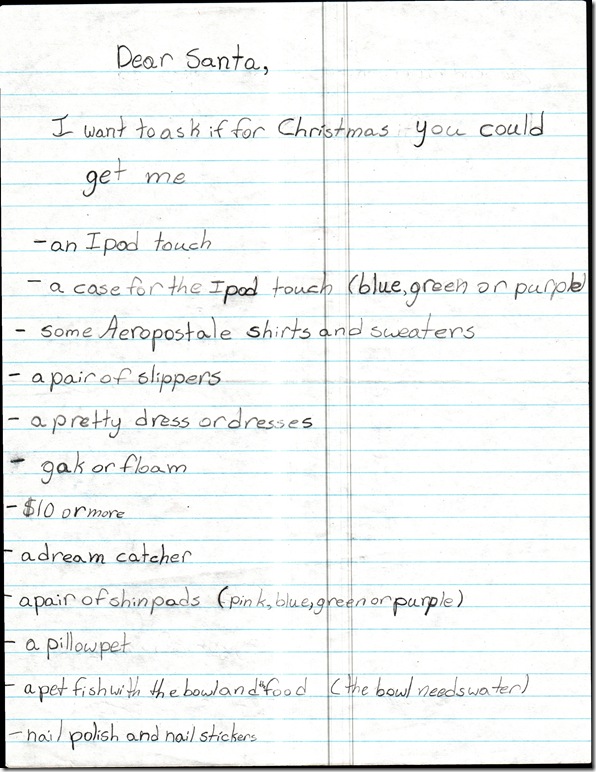 Dear Santa,
I want to ask if for Christmas you could
get me
- an Ipod touch
- a case for the Ipod touch (blue, green or purple)
- some Aeropostale shirts and sweaters
- a pair of slippers
- a pretty dress or dresses
- gak or floam
- $10 or more
- a dream catcher
- a pair of shinpads (pink, blue, green or purple)
- a pillowpet
- a pet fish with the bowl and food (the bowl needs water)
- nail polish and nail stickers